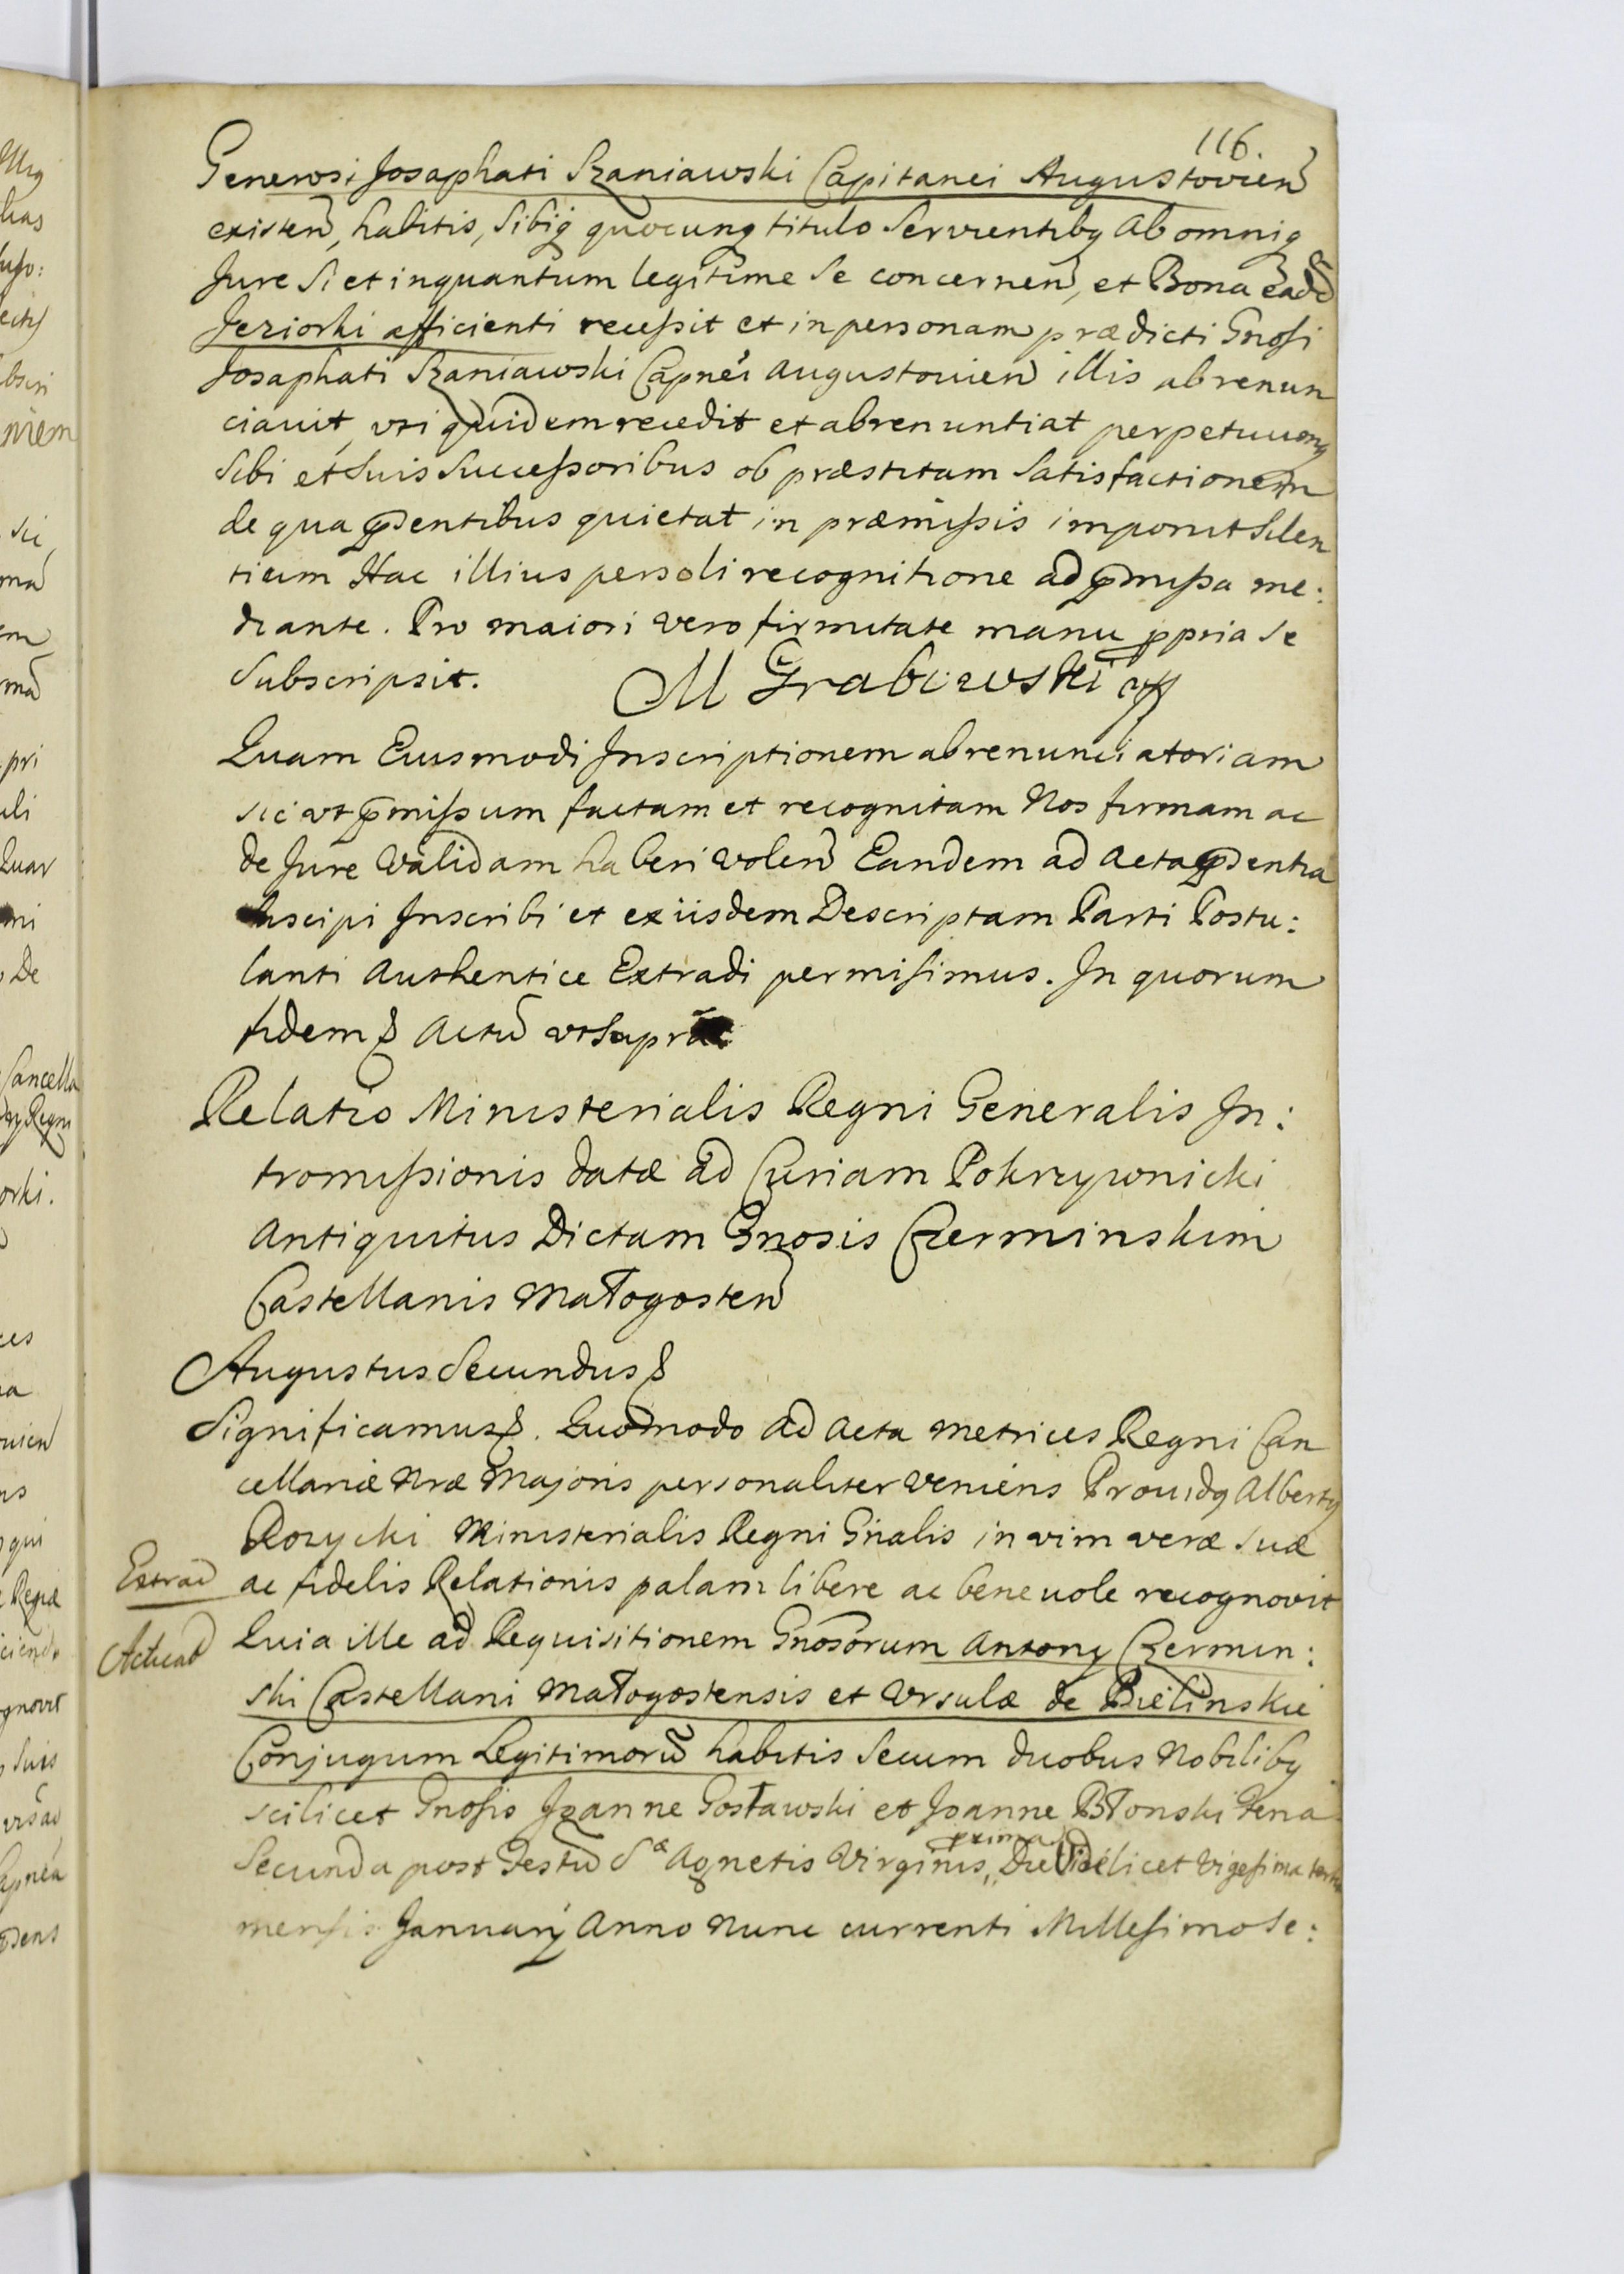 116.
Generosi Josaphati Szaniawski Capitanei Augustovien
existen, habitis, sibiq quocunq titulo servientibq ab omniq
Jure si et inquantum legitime se concernen, et Bona ead
Jeziorki afficienti recessit et in personam prædicti Gnosi
Josaphati Szaniawski Capnei Augustovien illis abrenun
ciavit, uti quidem recedit et abrenuntiat perpetuumq
sibi et suis successoribus ob præstitam satisfactionem
de qua pndentibus quietat in præmissis imponit silen
tium Hac illius persoli recognitione ad pmissa me:
diante. Pro maiori vero firmitate manu ppria se
subscripsit. M Grabowski
Quam Eiusmodi Inscriptionem abrenunciatoriam
sic ut pmissum factam et recognitam Nos firmam ac
de Jure validam haberi volen Eandem ad Acta pndentia
suscipi Inscribi et ex iisdem Descriptam Parti Postu:
lanti Authentice Extradi permisimus. In quorum
fidem Actu ut supra
Relatio Ministerialis Regni Generalis In:
tromissionis datæ ad Curiam Pokrzywnicki
Antiquitus Dictam Gnosis Czerminskim
Castellanis Małogosten
Augustus Secundus
Significamus. Quomodo ad Acta Metrices Regni Can
cellariæ Nræ Majoris personaliter veniens Providq Albertq
Rozycki Ministerialis Regni Gnalis in vim veræ suæ
Extrad ac fidelis Relationis palam libere ac benevole recognovit
Actuad Quia ille ad Requisitionem Gnosorum Antony Czermin:
ski Castellani Małogostensis et Ursulæ de Bielinskie
Conjugum Legitimorū habitis secum duobus Nobilibq
scilicet Gnosis Joanne Gosławski et Joanne Błonski Feria
prima
Secunda post Festū Sæ Agnetis Virginis, Die Videlicet Vigesima tertia
mensis January Anno nunc currenti Millesimo Se: